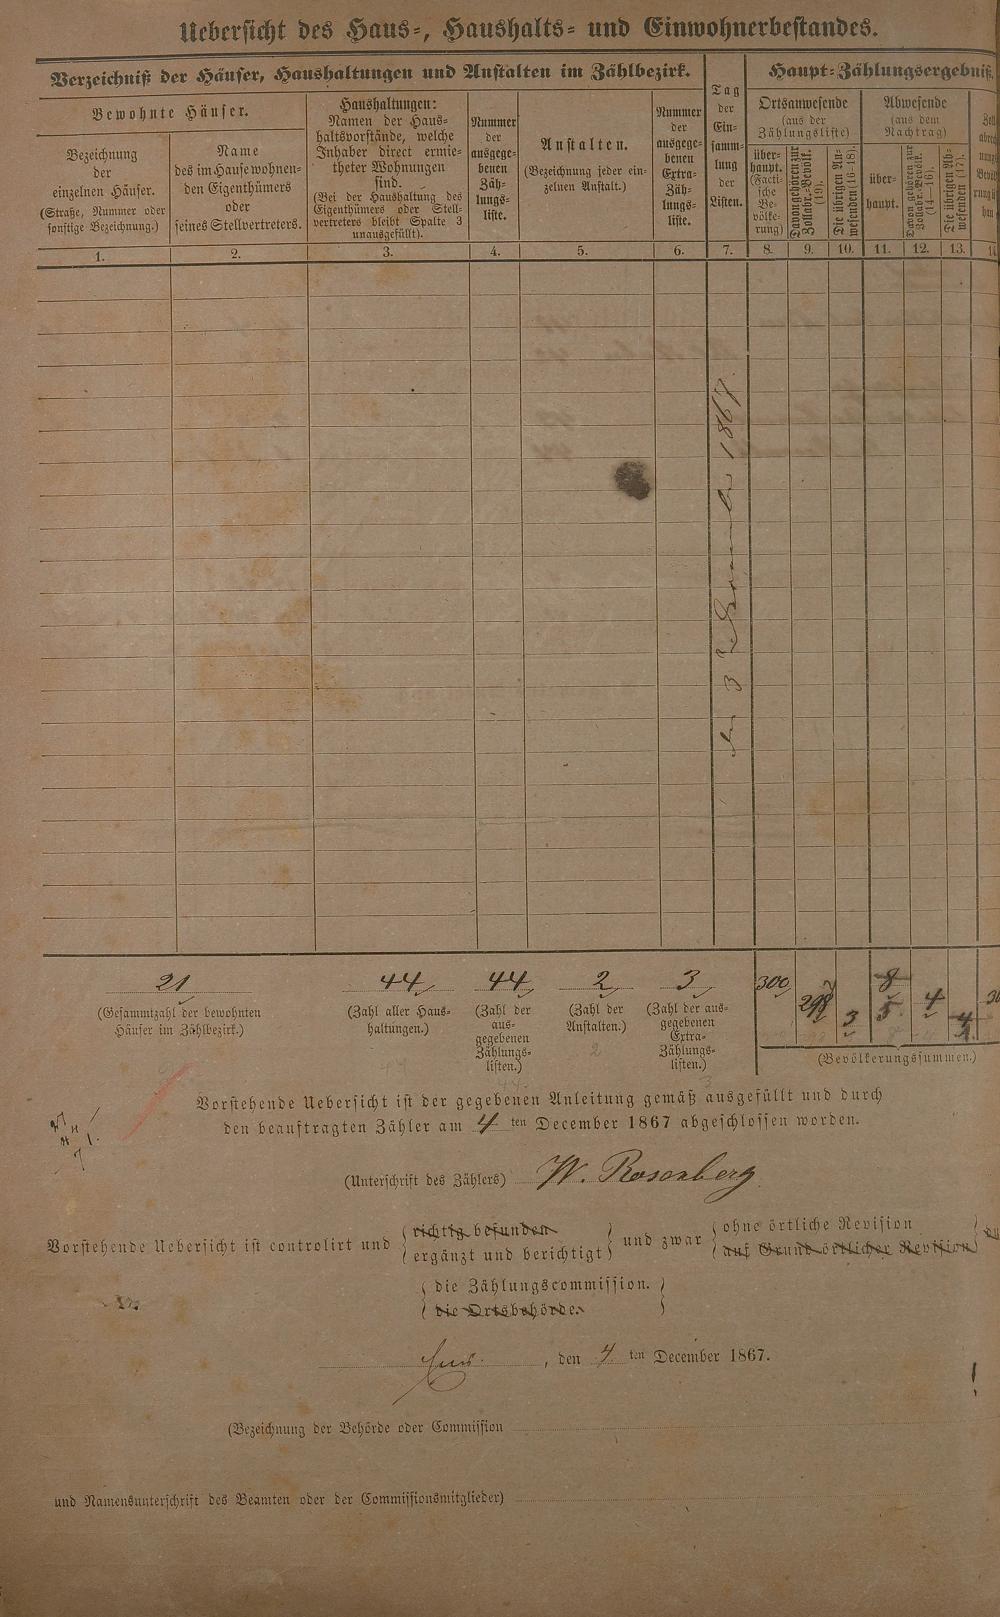 Uebersicht des Haus-, Haushalts- und Einwohnerbestandes.
Verzeichniß der Häuser, Haushaltungen und Anstalten im Zählbezirk.
Haupt-Zählungsergebniß.
Bewohnte Häuser.
Bezeichnung
der
einzelnen Häuser.
(Straße, Nummer oder
sonstige Bezeichnung.)
Name
des im Hause wohnen-
den Eigenthümers
oder
seines Stellvertreters.
Haushaltungen:
Namen der Haus-
haltsvorstände, welche
Inhaber direct ermie-
theter Wohnungen
sind.
(Bei der Haushaltung des
Eigenthümers oder Stell-
vertreters bleibt Spalte 3
unausgefüllt).
Nummer
der
ausgege-
benen
Zäh-
lungs-
liste.
Anstalten.
(Bezeichnung jeder ein-
zelnen Anstalt.)
Nummer
der
ausgege-
benen
Extra-
Zäh-
lungs-
liste.
Tag
der
Ein-
samm-
lung
der
Listen.
Ortsanwesende
(aus der
Zählungsliste)
über-
haupt.
(Facti-
sche
Be-
völke-
rung)
Davon gehören zur
Zollabr.-Bevölk.
(19).
Die übrigen An-
wesenden (16–18).
Abwesende
(aus dem
Nachtrag)
über-
haupt.
Davon gehören zur
Zollabr.-Bevölk.
(14–16).
Die übrigen Ab-
wesenden (17).
1. 2. 3. 4. 5. 6. 7. 8. 9. 10. 11. 12. 13.
den 3 Dezember 1867.
21 44 44 2 3 300 298 3 8 5 4
(Gesammtzahl der bewohnten
Häuser im Zählbezirk.)
(Zahl aller Haus-
haltungen.)
(Zahl der
aus-
gegebenen
Zählungs-
listen.)
(Zahl der
Anstalten.)
(Zahl der aus-
gegebenen
Extra-
Zählungs-
listen.)
(Bevölkerungssummen.)
Vorstehende Uebersicht ist der gegebenen Anleitung gemäß ausgefüllt und durch
den beauftragten Zähler am 4 ten December 1867 abgeschlossen worden.
(Unterschrift des Zählers) W. Rosenberg
Vorstehende Uebersicht ist controlirt und richtig befunden ergänzt und berichtigt und zwar ohne örtliche Revision auf Grund örtlicher Revision
die Zählungscommission.
die Ortsbehörde.
, den 4. ten December 1867.
(Bezeichnung der Behörde oder Commission
und Namensunterschrift des Beamten oder der Commissionsmitglieder)